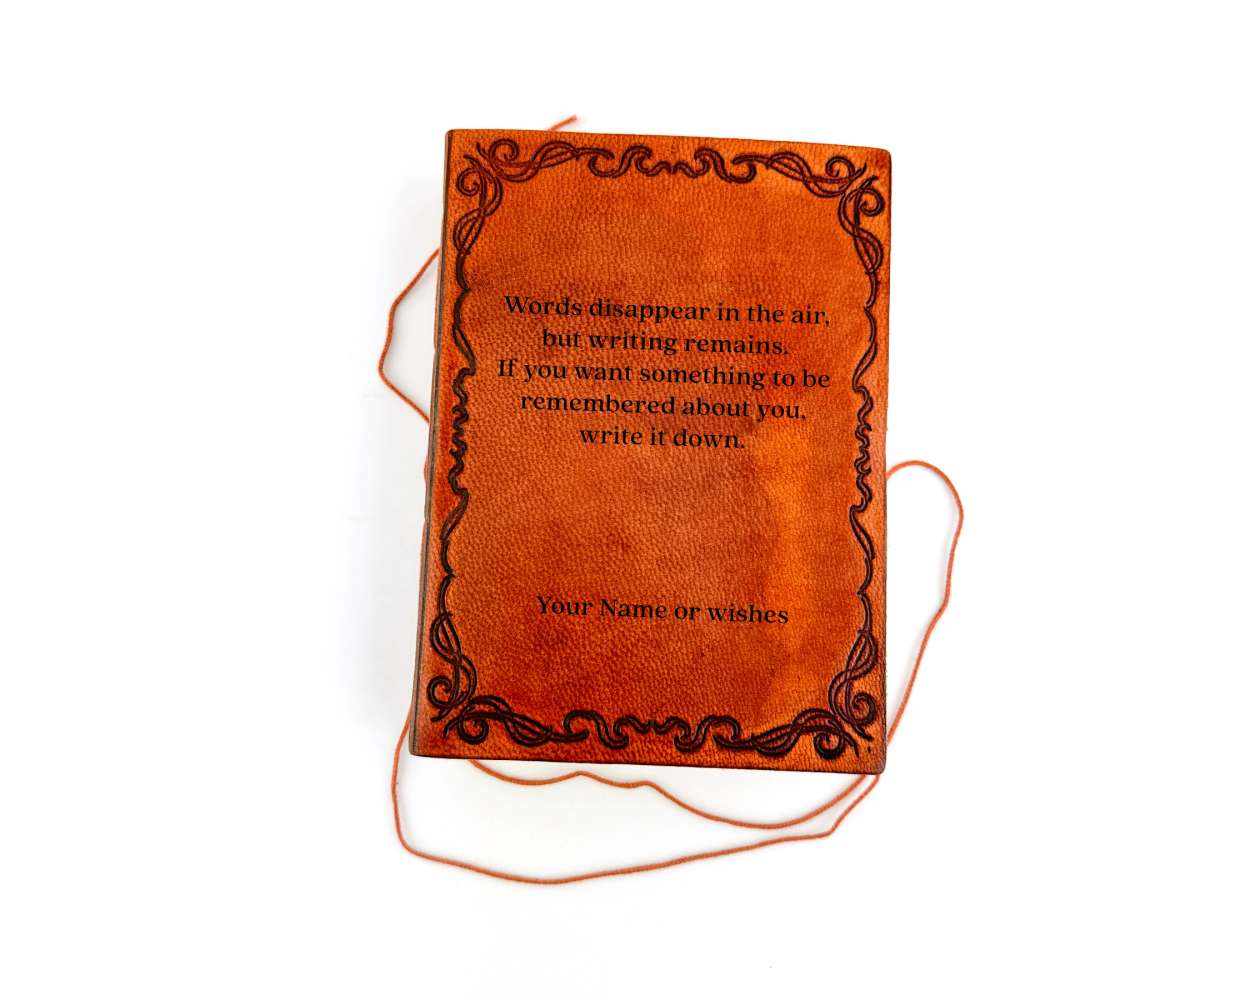 Words disappear in the air,
but writing remains.
If you want something to be
remembered about you,
write it down.
Your Name or wishes